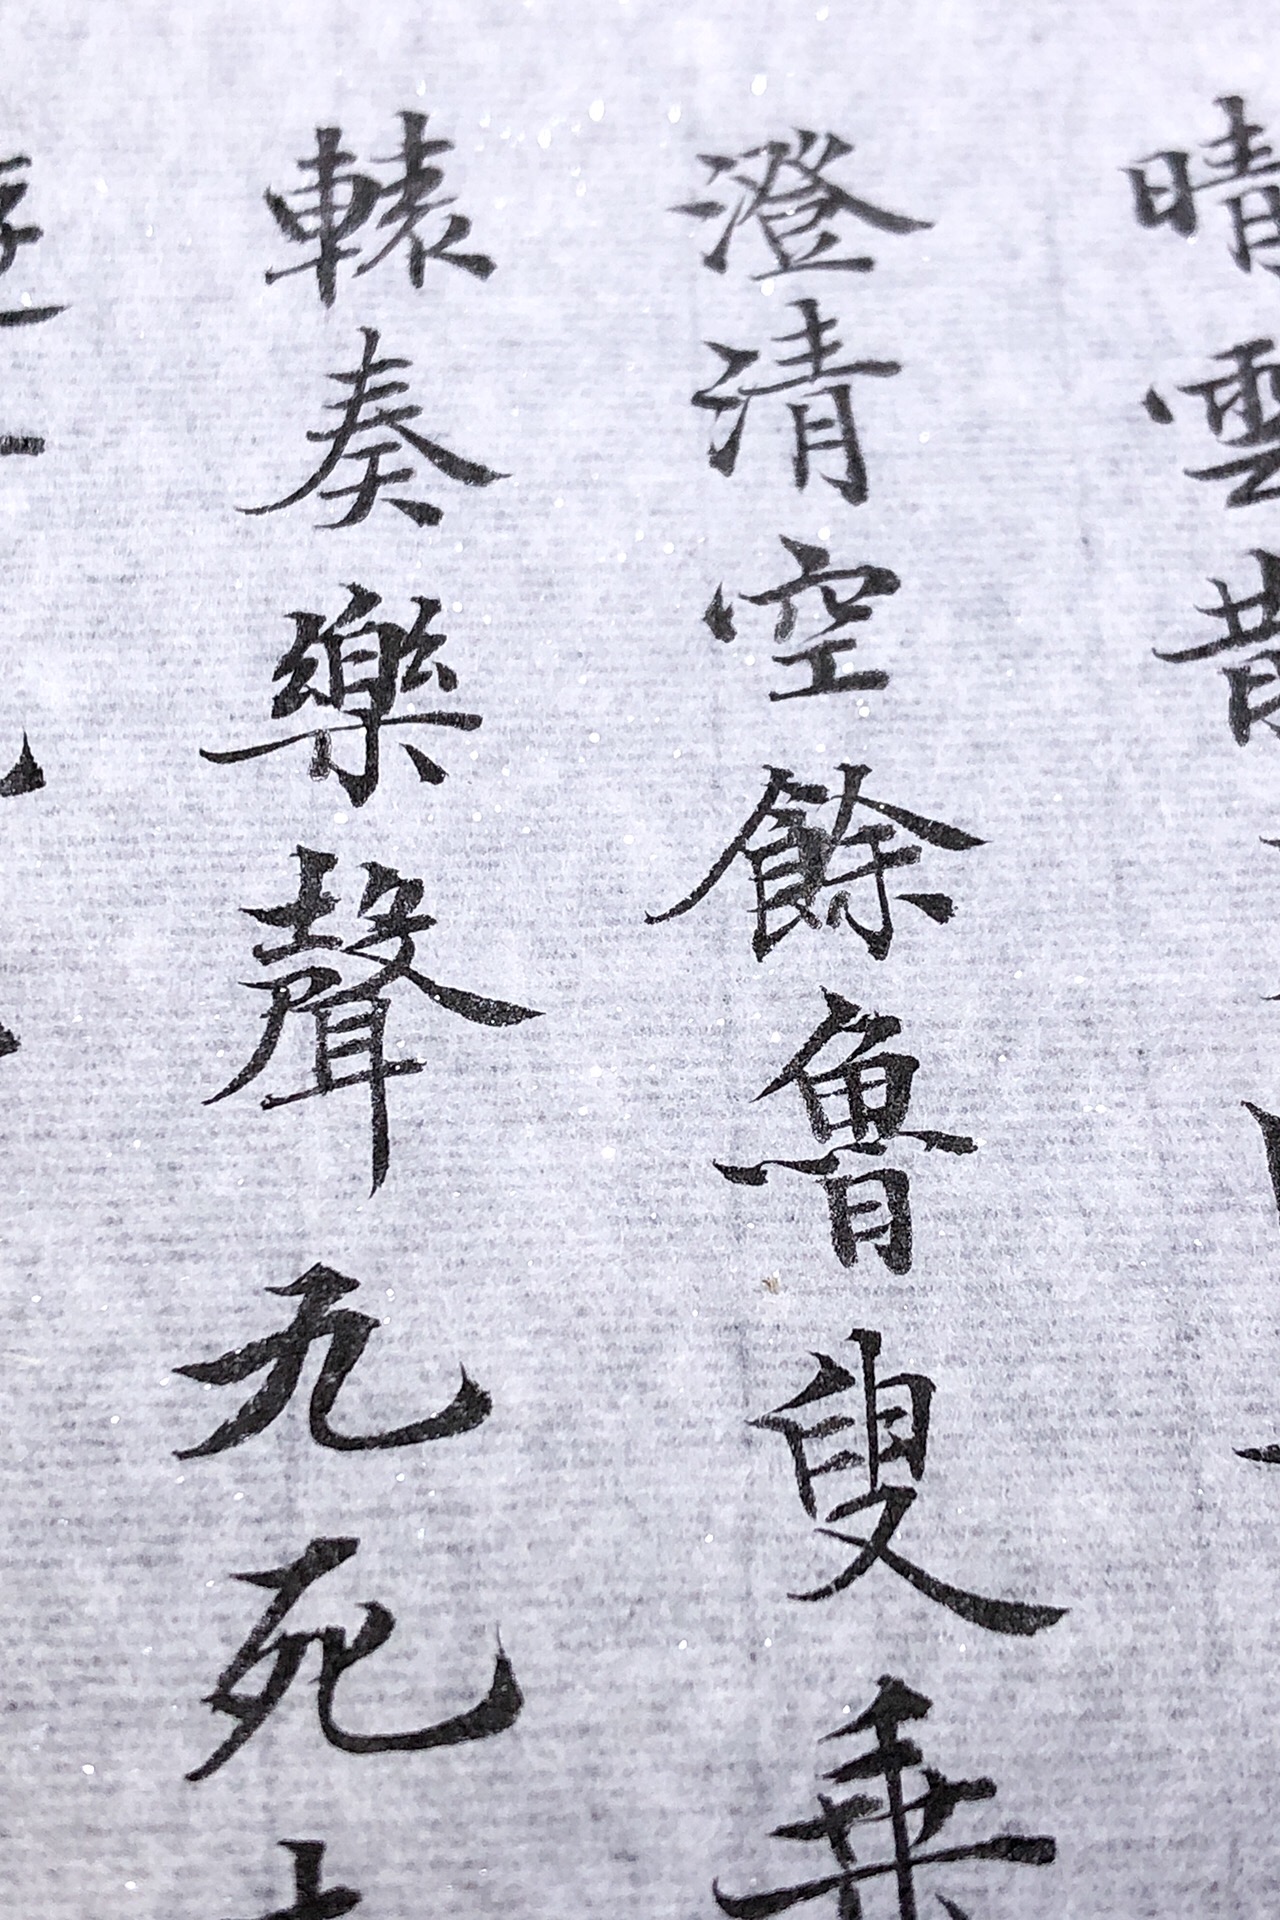 晴雲散
澄清空餘魯叟乗
轅奏樂聲九死